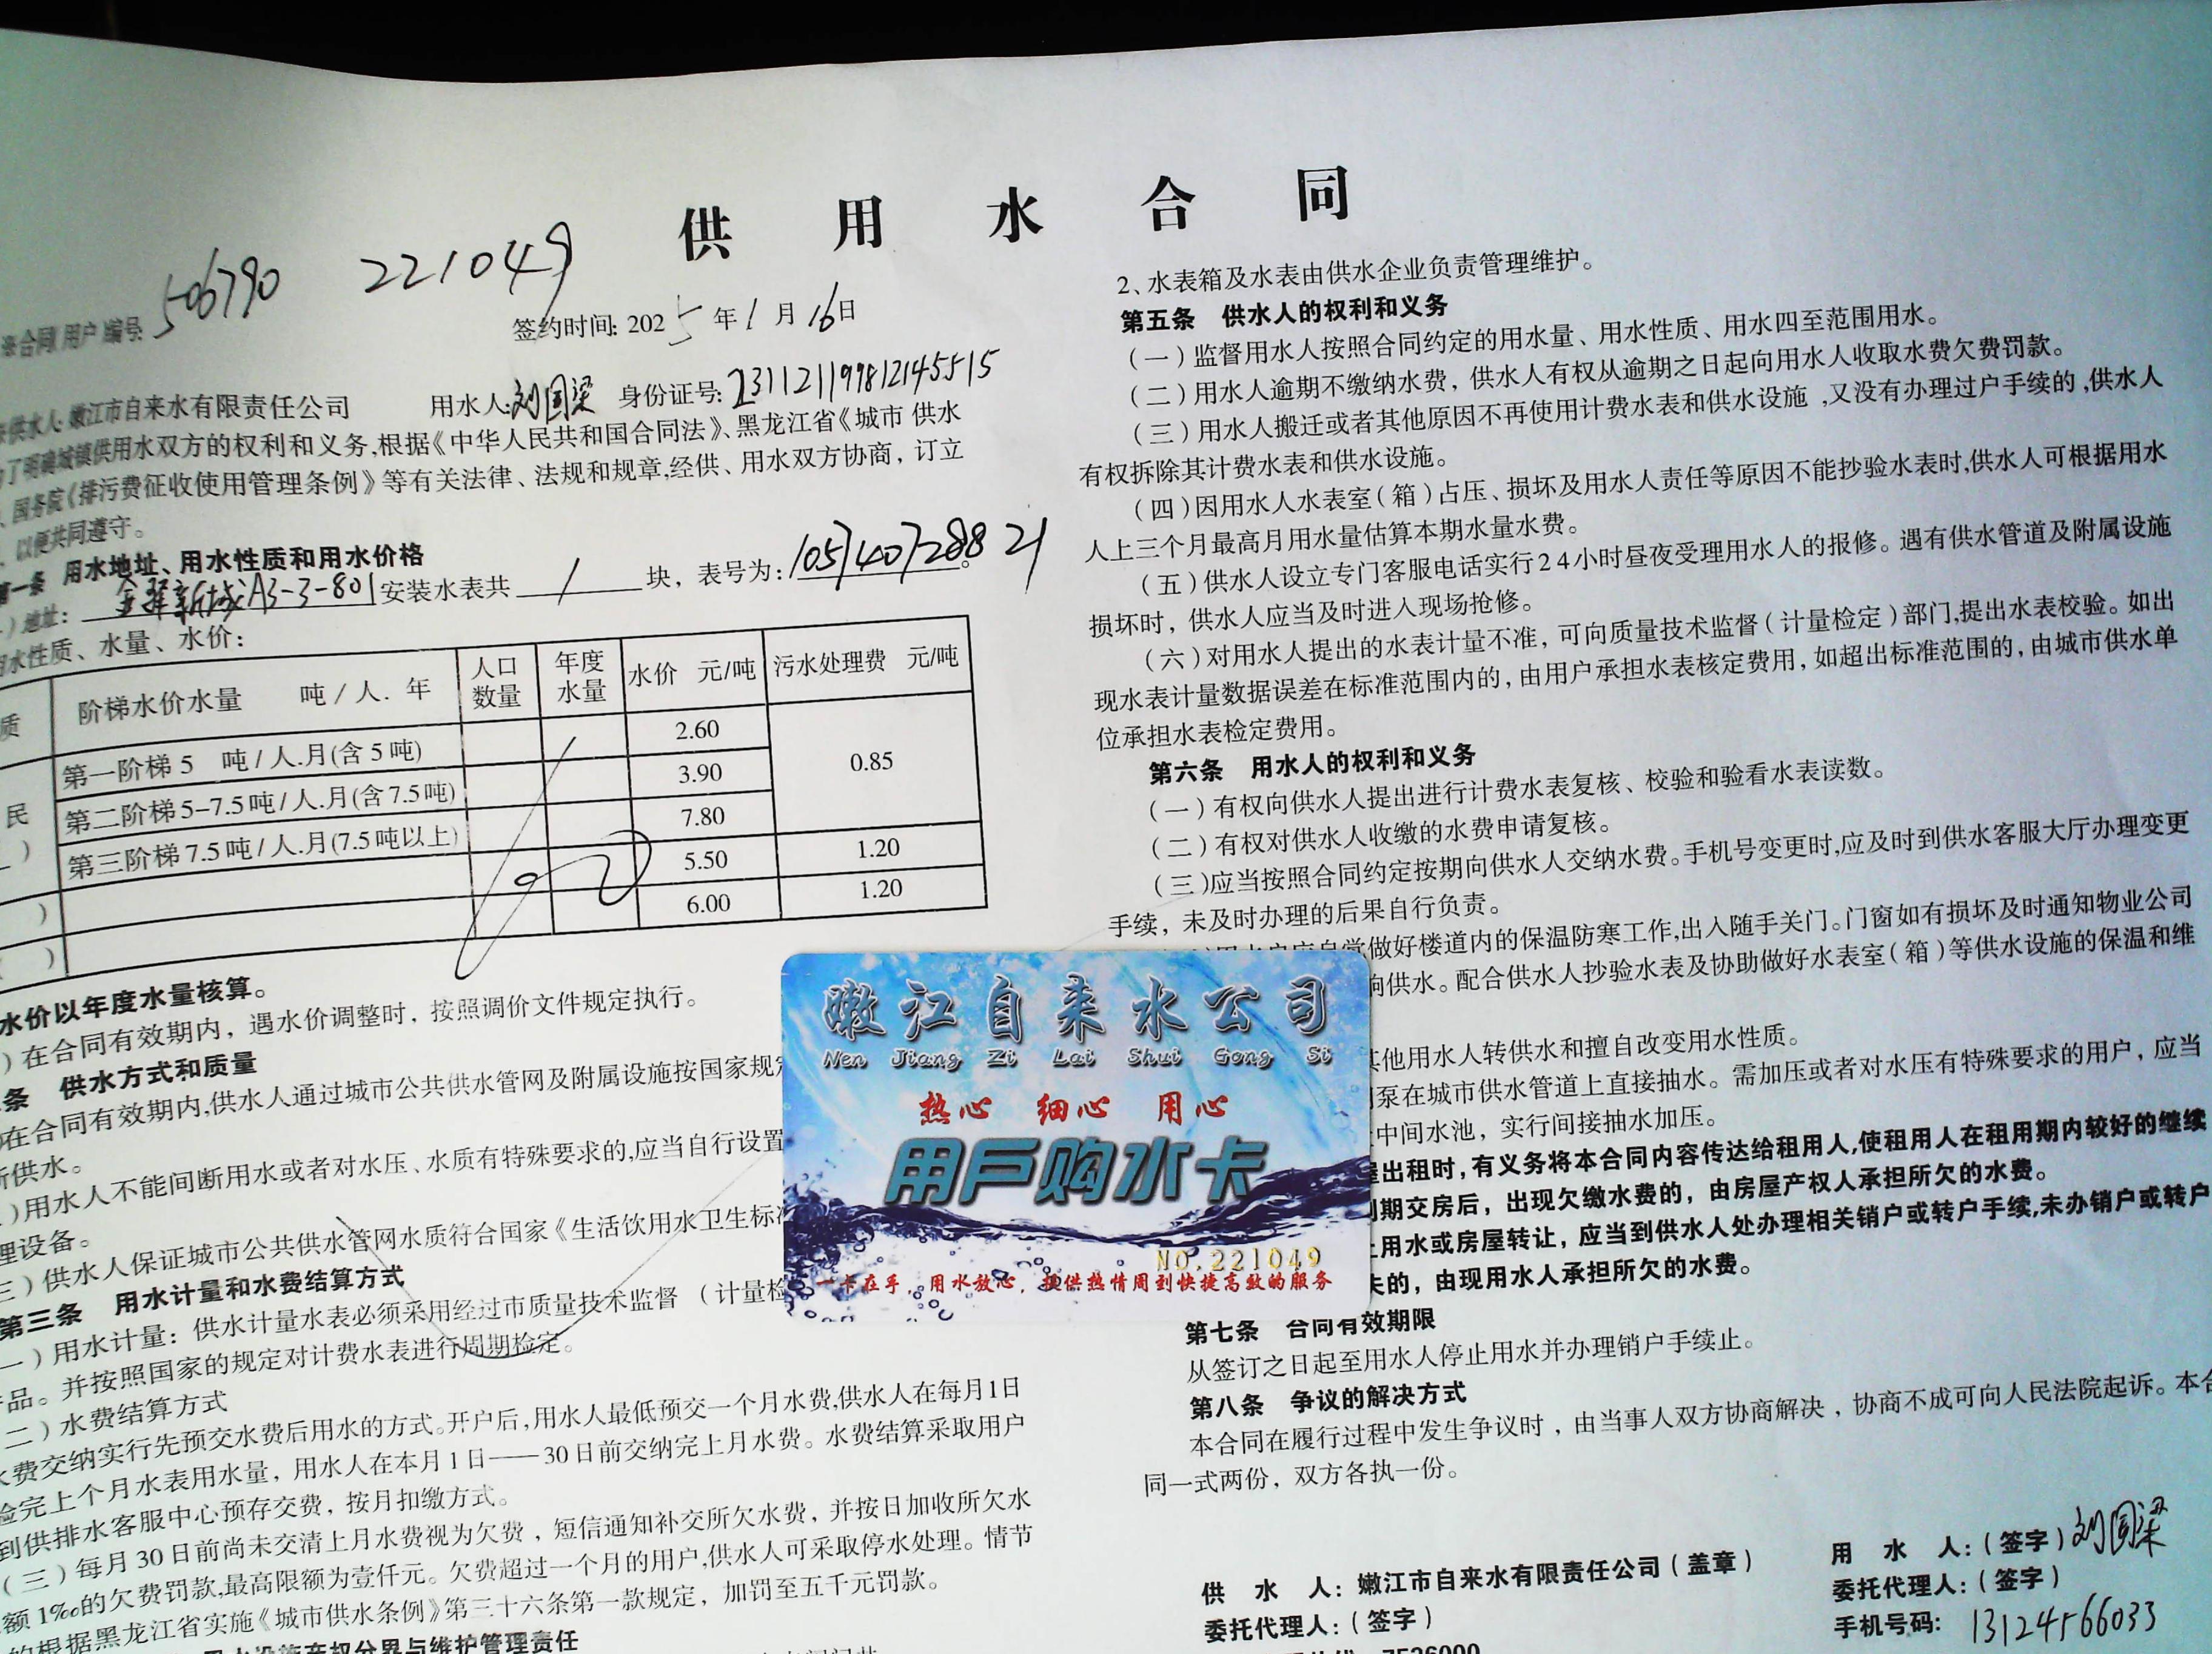 供用水合同
506790 221049
合同(用户)编号:
签约时间: 2025年1月16日
供水人: 嫩江市自来水有限责任公司 用水人: 刘国梁 身份证号:
了明确城镇供用水双方的权利和义务,根据《中华人民共和国合同法》、黑龙江省《城市 供水
、国务院《排污费征收使用管理条例》等有关法律、法规和规章,经供、用水双方协商，订立
以便共同遵守。
第一条 用水地址、用水性质和用水价格
)地址: 新城A3-3-801 安装水表共 1 块，表号为:
用水性质、水量、水价:
质 阶梯水价水量 吨/人.年 人口数量 年度水量 水价 元/吨 污水处理费 元/吨
民 第一阶梯 5 吨/人.月(含 5 吨) 2.60 0.85
第二阶梯 5-7.5 吨/人.月(含 7.5 吨) 3.90
第三阶梯 7.5 吨/人.月(7.5 吨以上) 7.80
5.50 1.20
6.00 1.20
水价以年度水量核算。
)在合同有效期内，遇水价调整时，按照调价文件规定执行。
条 供水方式和质量
)在合同有效期内,供水人通过城市公共供水管网及附属设施按国家规
供水。
)用水人不能间断用水或者对水压、水质有特殊要求的,应当自行设置
理设备。
三)供水人保证城市公共供水管网水质符合国家《生活饮用水卫生标
第三条 用水计量和水费结算方式
一)用水计量：供水计量水表必须采用经过市质量技术监督（计量检
品。并按照国家的规定对计费水表进行周期检定。
二)水费结算方式
费交纳实行先预交水费后用水的方式。开户后,用水人最低预交一个月水费,供水人在每月1日
完上个月水表用水量，用水人在本月1日——30日前交纳完上月水费。水费结算采取用户
到供排水客服中心预存交费，按月扣缴方式。
(三)每月30日前尚未交清上月水费视为欠费，短信通知补交所欠水费，并按日加收所欠水
额1‰的欠费罚款,最高限额为壹仟元。欠费超过一个月的用户,供水人可采取停水处理。情节
的根据黑龙江省实施《城市供水条例》第三十六条第一款规定，加罚至五千元罚款。
用水设施产权分界与维护管理责任
2、水表箱及水表由供水企业负责管理维护。
第五条 供水人的权利和义务
(一)监督用水人按照合同约定的用水量、用水性质、用水四至范围用水。
(二)用水人逾期不缴纳水费，供水人有权从逾期之日起向用水人收取水费欠费罚款。
(三)用水人搬迁或者其他原因不再使用计费水表和供水设施,又没有办理过户手续的,供水人
有权拆除其计费水表和供水设施。
(四)因用水人水表室(箱)占压、损坏及用水人责任等原因不能抄验水表时,供水人可根据用水
人上三个月最高月用水量估算本期水量水费。
(五)供水人设立专门客服电话实行24小时昼夜受理用水人的报修。遇有供水管道及附属设施
损坏时，供水人应当及时进入现场抢修。
(六)对用水人提出的水表计量不准，可向质量技术监督(计量检定)部门,提出水表校验。如出
现水表计量数据误差在标准范围内的，由用户承担水表核定费用，如超出标准范围的，由城市供水单
位承担水表检定费用。
第六条 用水人的权利和义务
(一)有权向供水人提出进行计费水表复核、校验和验看水表读数。
(二)有权对供水人收缴的水费申请复核。
(三)应当按照合同约定按期向供水人交纳水费。手机号变更时,应及时到供水客服大厅办理变更
手续，未及时办理的后果自行负责。
做好楼道内的保温防寒工作,出入随手关门。门窗如有损坏及时通知物业公司
响供水。配合供水人抄验水表及协助做好水表室(箱)等供水设施的保温和维
其他用水人转供水和擅自改变用水性质。
泵在城市供水管道上直接抽水。需加压或者对水压有特殊要求的用户，应当
中间水池，实行间接抽水加压。
出租时,有义务将本合同内容传达给租用人,使租用人在租用期内较好的继续
期交房后，出现欠缴水费的，由房屋产权人承担所欠的水费。
用水或房屋转让，应当到供水人处办理相关销户或转户手续,未办销户或转户
的，由现用水人承担所欠的水费。
第七条 合同有效期限
从签订之日起至用水人停止用水并办理销户手续止。
第八条 争议的解决方式
本合同在履行过程中发生争议时，由当事人双方协商解决，协商不成可向人民法院起诉。本合
同一式两份，双方各执一份。
供 水 人: 嫩江市自来水有限责任公司(盖章)
委托代理人:(签字)
7526000
用 水 人:(签字)刘国梁
委托代理人:(签字)
手机号码: 13124566033
嫩江自来水公司
Nen Jiang Zi Lai Shui Gong Si
热心 细心 用心
用户购水卡
NO.221049
一卡在手，用水放心，提供热情周到快捷高效的服务